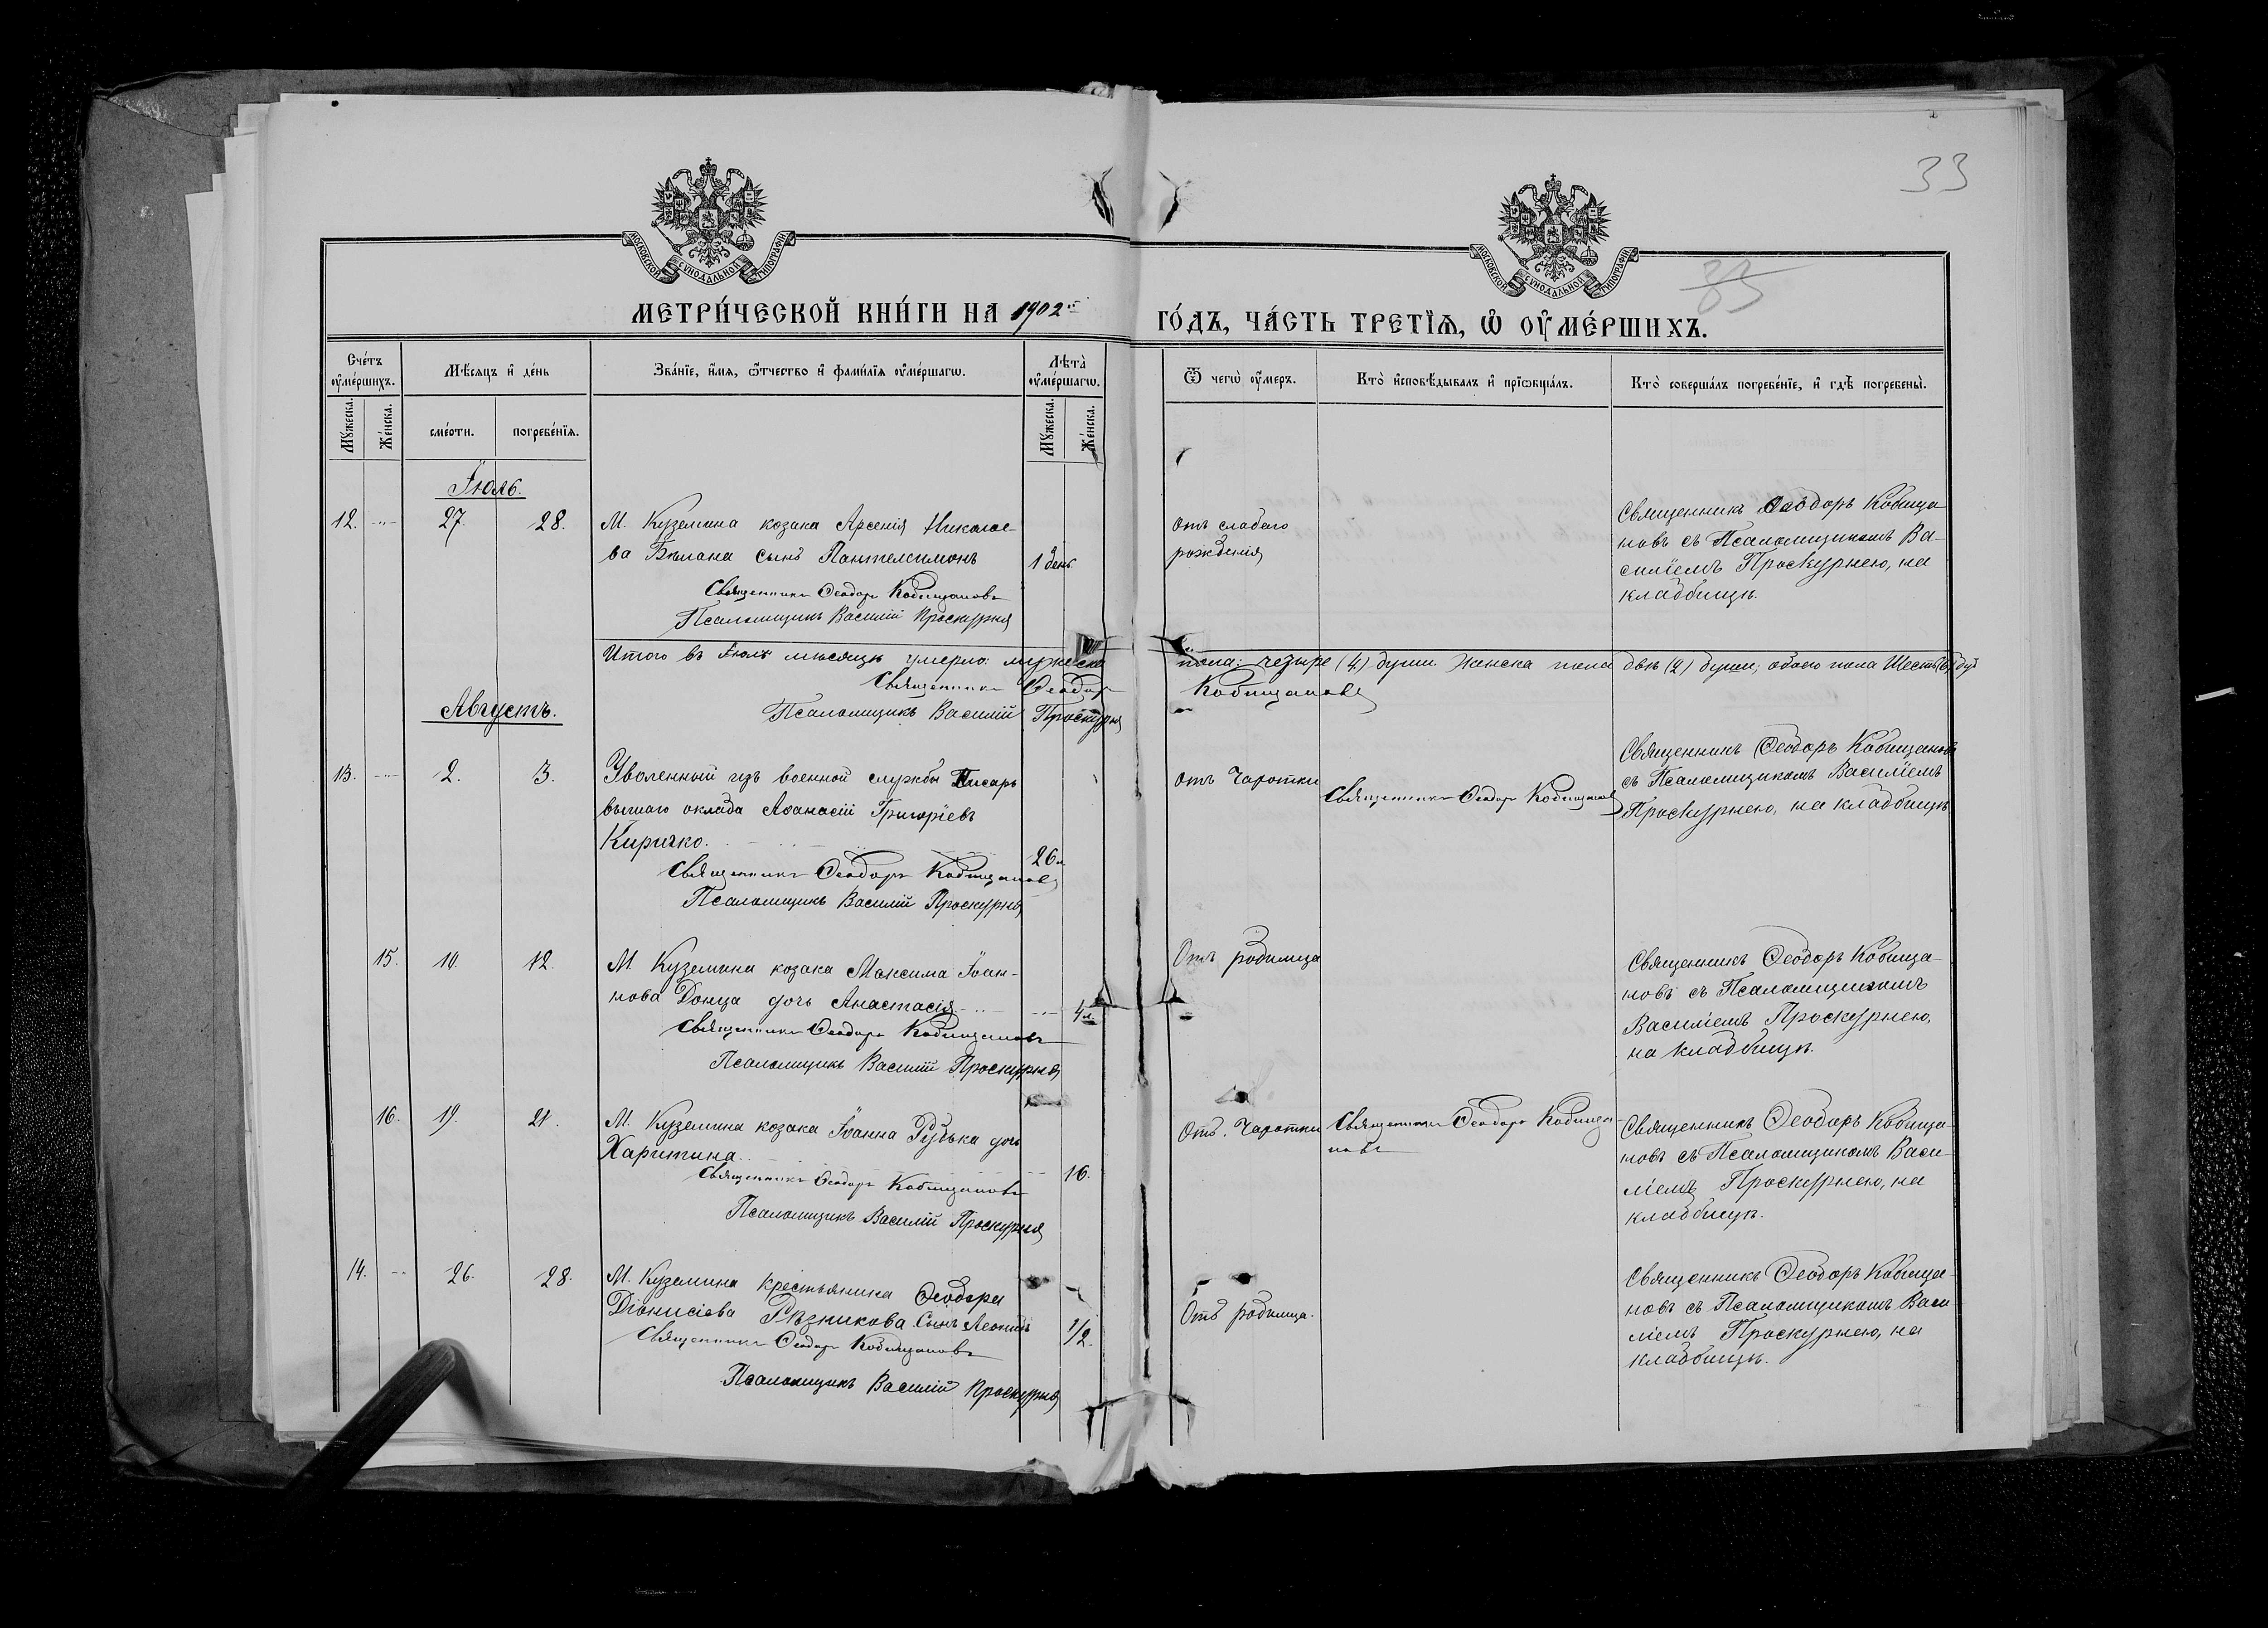 33
МОСКОВСКОЙ СѴНОДАЛЬНОЙ ТИПОГРАФІИ
МОСКОВСКОЙ СѴНОДАЛЬНОЙ ТИПОГРАФІИ
МЕТРИ́ЧЕСКОЙ КНИ́ГИ НА 1902й
ГО́ДЪ, ЧА́СТЬ ТРЕТІѦ, Ѡ ОУМЕ́РШИХЪ.
Сче́тъ оумершихъ.
Мѣсяцъ и день
Зва́нїе, имя, ѿчество и фамилїя оумершагѡ.
Лѣта оумершагѡ.
Ѿ чегѡ оумеръ.
Кто исповѣдывалъ и прїѡбщалъ.
Кто совершалъ погребенїе, и гдѣ погребены.
Мужеска.
Женска.
смерти.
погребенїя.
Мужеска.
Женска.
Іюль.
12. 27. 28. М. Куземина козака Арсенія Николае-
ва Бѣлана сынъ Пантелеимонъ 1 день
Священникъ Ѳеодоръ Кобищановъ
Псаломщикъ Василій Проскурня
Отъ слабаго
рожденія
Священникъ Ѳеодоръ Кобища-
новъ съ Псаломщикомъ Ва-
силіемъ Проскурнею, на
кладбищѣ.
Итого въ Іюлѣ мѣсяцѣ умерло: мужеска пола: четыре (4) души. Женска пола двѣ (2) души, обоего пола Шесть (6) душ
Священникъ Ѳеодоръ Кобищановъ
Псаломщикъ Василій Проскурня
Августъ.
13. 2. 3. Уволенный изъ военной службы Писарь
высшаго оклада Аѳанасій Григоріевъ
Киричко. 26 л.
Священникъ Ѳеодоръ Кобищановъ
Псаломщикъ Василій Проскурня
Отъ Чахотки
Священникъ Ѳеодоръ Кобищановъ
Священникъ Ѳеодоръ Кобищановъ
съ Псаломщикомъ Василіемъ
Проскурнею, на кладбищѣ.
15. 10. 12. М. Куземина козака Максима Іоан-
нова Донца дочь Анастасія 4 м.
Священникъ Ѳеодоръ Кобищановъ
Псаломщикъ Василій Проскурня
Отъ родимца
Священникъ Ѳеодоръ Кобища-
новъ съ Псаломщикомъ
Василіемъ Проскурнею,
на кладбищѣ.
16. 19. 21. М. Куземина козака Іоанна Рудька дочь
Харитина. 16.
Священникъ Ѳеодоръ Кобищановъ
Псаломщикъ Василій Проскурня
Отъ. Чахотки
Священникъ Ѳеодоръ Кобища-
новъ
Священникъ Ѳеодоръ Кобища-
новъ съ Псаломщикомъ Васи-
ліемъ Проскурнею, на
кладбищѣ.
14. 26. 28. М. Куземина крестьянина Ѳеодора
Діонисіева Рѣзникова Сынъ Леонидъ 1/2.
Священникъ Ѳеодоръ Кобищановъ
Псаломщикъ Василій Проскурня
Отъ родимца.
Священникъ Ѳеодоръ Кобища-
новъ съ Псаломщикомъ Васи-
ліемъ Проскурнею, на
кладбищѣ.